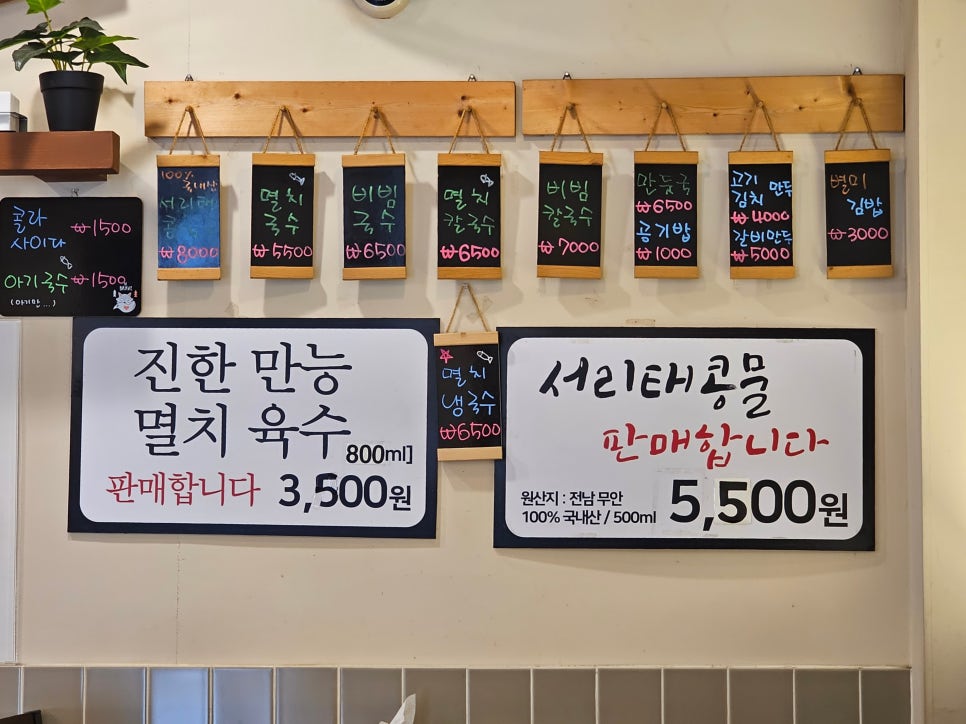 100%
국내산
서리태
콩국수
₩8000
멸치
국수
₩5500
비빔
국수
₩6500
멸치
칼국수
₩6500
비빔
칼국수
₩7000
만둣국
₩6500
공기밥
₩1000
고기
김치 만두
₩4000
갈비만두
₩5000
별미
김밥
₩3000
콜라
사이다 ₩1500
아기국수 ₩1500
(아기만...)
멸치
냉국수
₩6500
진한 만능
멸치 육수
800ml]
판매합니다 3,500원
서리태콩물
판매합니다
원산지 : 전남 무안
100% 국내산 / 500ml 5,500원